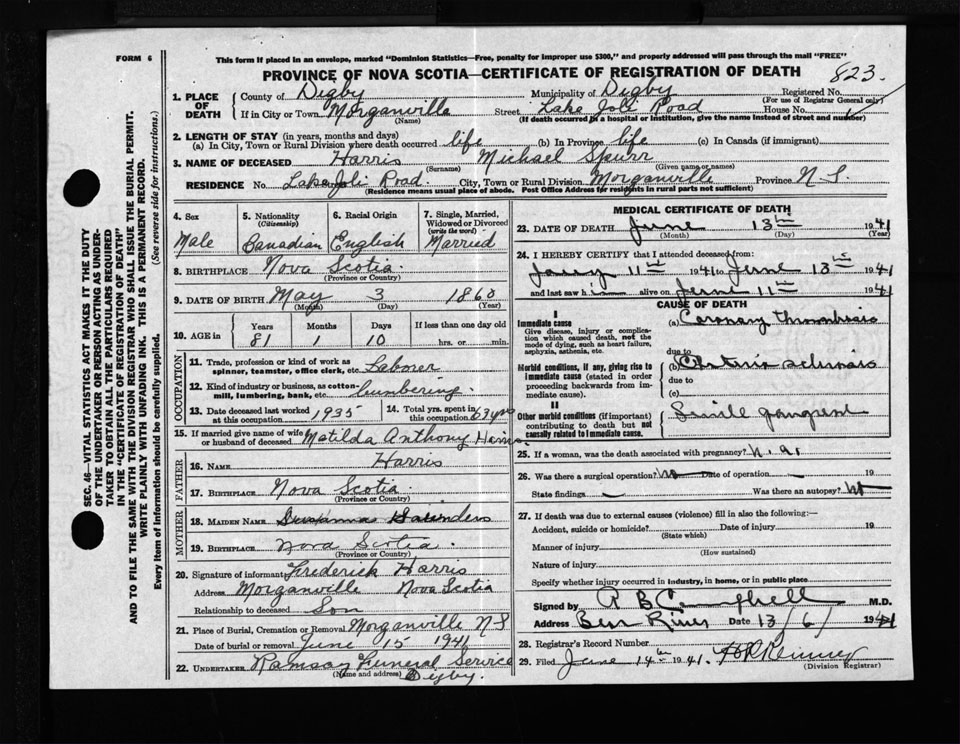 FORM 6
This form if placed in an envelope, marked "Dominion Statistics—Free, penalty for improper use $300," and properly addressed will pass through the mail "FREE"
PROVINCE OF NOVA SCOTIA—CERTIFICATE OF REGISTRATION OF DEATH
823
SEC. 46—VITAL STATISTICS ACT MAKES IT THE DUTY
OF THE UNDERTAKER OR PERSON ACTING AS UNDER-
TAKER TO OBTAIN ALL THE PARTICULARS REQUIRED
IN THE "CERTIFICATE OF REGISTRATION OF DEATH"
AND TO FILE THE SAME WITH THE DIVISION REGISTRAR WHO SHALL ISSUE THE BURIAL PERMIT.
WRITE PLAINLY WITH UNFADING INK. THIS IS A PERMANENT RECORD.
Every item of information should be carefully supplied. (See reverse side for instructions.)
1. PLACE OF DEATH
County of Digby Municipality of Digby Registered No.
(For use of Registrar General only)
If in City or Town Morganville Street Lake Joli Road House No.
(Name) (If death occurred in a hospital or institution, give the name instead of street and number)
2. LENGTH OF STAY (in years, months and days)
(a) In City, Town or Rural Division where death occurred life (b) In Province life (c) In Canada (if immigrant)
3. NAME OF DECEASED Harris Michael Spurr
(Surname) (Given name or names)
RESIDENCE No. Lake Joli Road City, Town or Rural Division Morganville Province N S.
(Residence means usual place of abode. Post Office Address for residents in rural parts not sufficient)
4. Sex Male
5. Nationality (Citizenship) Canadian
6. Racial Origin English
7. Single, Married, Widowed or Divorced (write the word) Married
8. BIRTHPLACE Nova Scotia
(Province or Country)
9. DATE OF BIRTH May 3 1860
(Month) (Day) (Year)
10. AGE in Years 81 Months 1 Days 10 If less than one day old hrs. or min.
OCCUPATION
11. Trade, profession or kind of work as spinner, teamster, office clerk, etc. Laborer
12. Kind of industry or business, as cotton-mill, lumbering, bank, etc. lumbering.
13. Date deceased last worked at this occupation 1935
14. Total yrs. spent in this occupation 63 yrs
15. If married give name of wife or husband of deceased Matilda Anthony
FATHER
16. NAME Harris
17. BIRTHPLACE Nova Scotia
(Province or Country)
MOTHER
18. MAIDEN NAME Saunders
19. BIRTHPLACE Nova Scotia.
(Province or Country)
20. Signature of informant Frederick Harris
Address Morganville Nova Scotia
Relationship to deceased Son
21. Place of Burial, Cremation or Removal Morganville N S
Date of burial or removal June 15 1941
22. UNDERTAKER Ramsay Funeral Service
(Name and address) Digby.
MEDICAL CERTIFICATE OF DEATH
23. DATE OF DEATH June 13th 1941
(Month) (Day) (Year)
24. I HEREBY CERTIFY that I attended deceased from:
11th 1941 to June 13th 1941
and last saw him alive on June 11th 1941
CAUSE OF DEATH
I
Immediate cause
Give disease, injury or complication which caused death, not the mode of dying, such as heart failure, asphyxia, asthenia, etc.
(a) Coronary thrombosis
due to
Morbid conditions, if any, giving rise to immediate cause (stated in order proceeding backwards from immediate cause).
(b)
due to
(c)
II
Other morbid conditions (if important) contributing to death but not causally related to immediate cause.
Senile gangrene
25. If a woman, was the death associated with pregnancy?
26. Was there a surgical operation? No Date of operation — 19
State findings — Was there an autopsy? No
27. If death was due to external causes (violence) fill in also the following:—
Accident, suicide or homicide? Date of injury 19
(State which)
Manner of injury
(How sustained)
Nature of injury
Specify whether injury occurred in industry, in home, or in public place
Signed by M.D.
Address Bear River Date 13/6/1941
28. Registrar's Record Number
29. Filed June 14th 1941.
(Division Registrar)